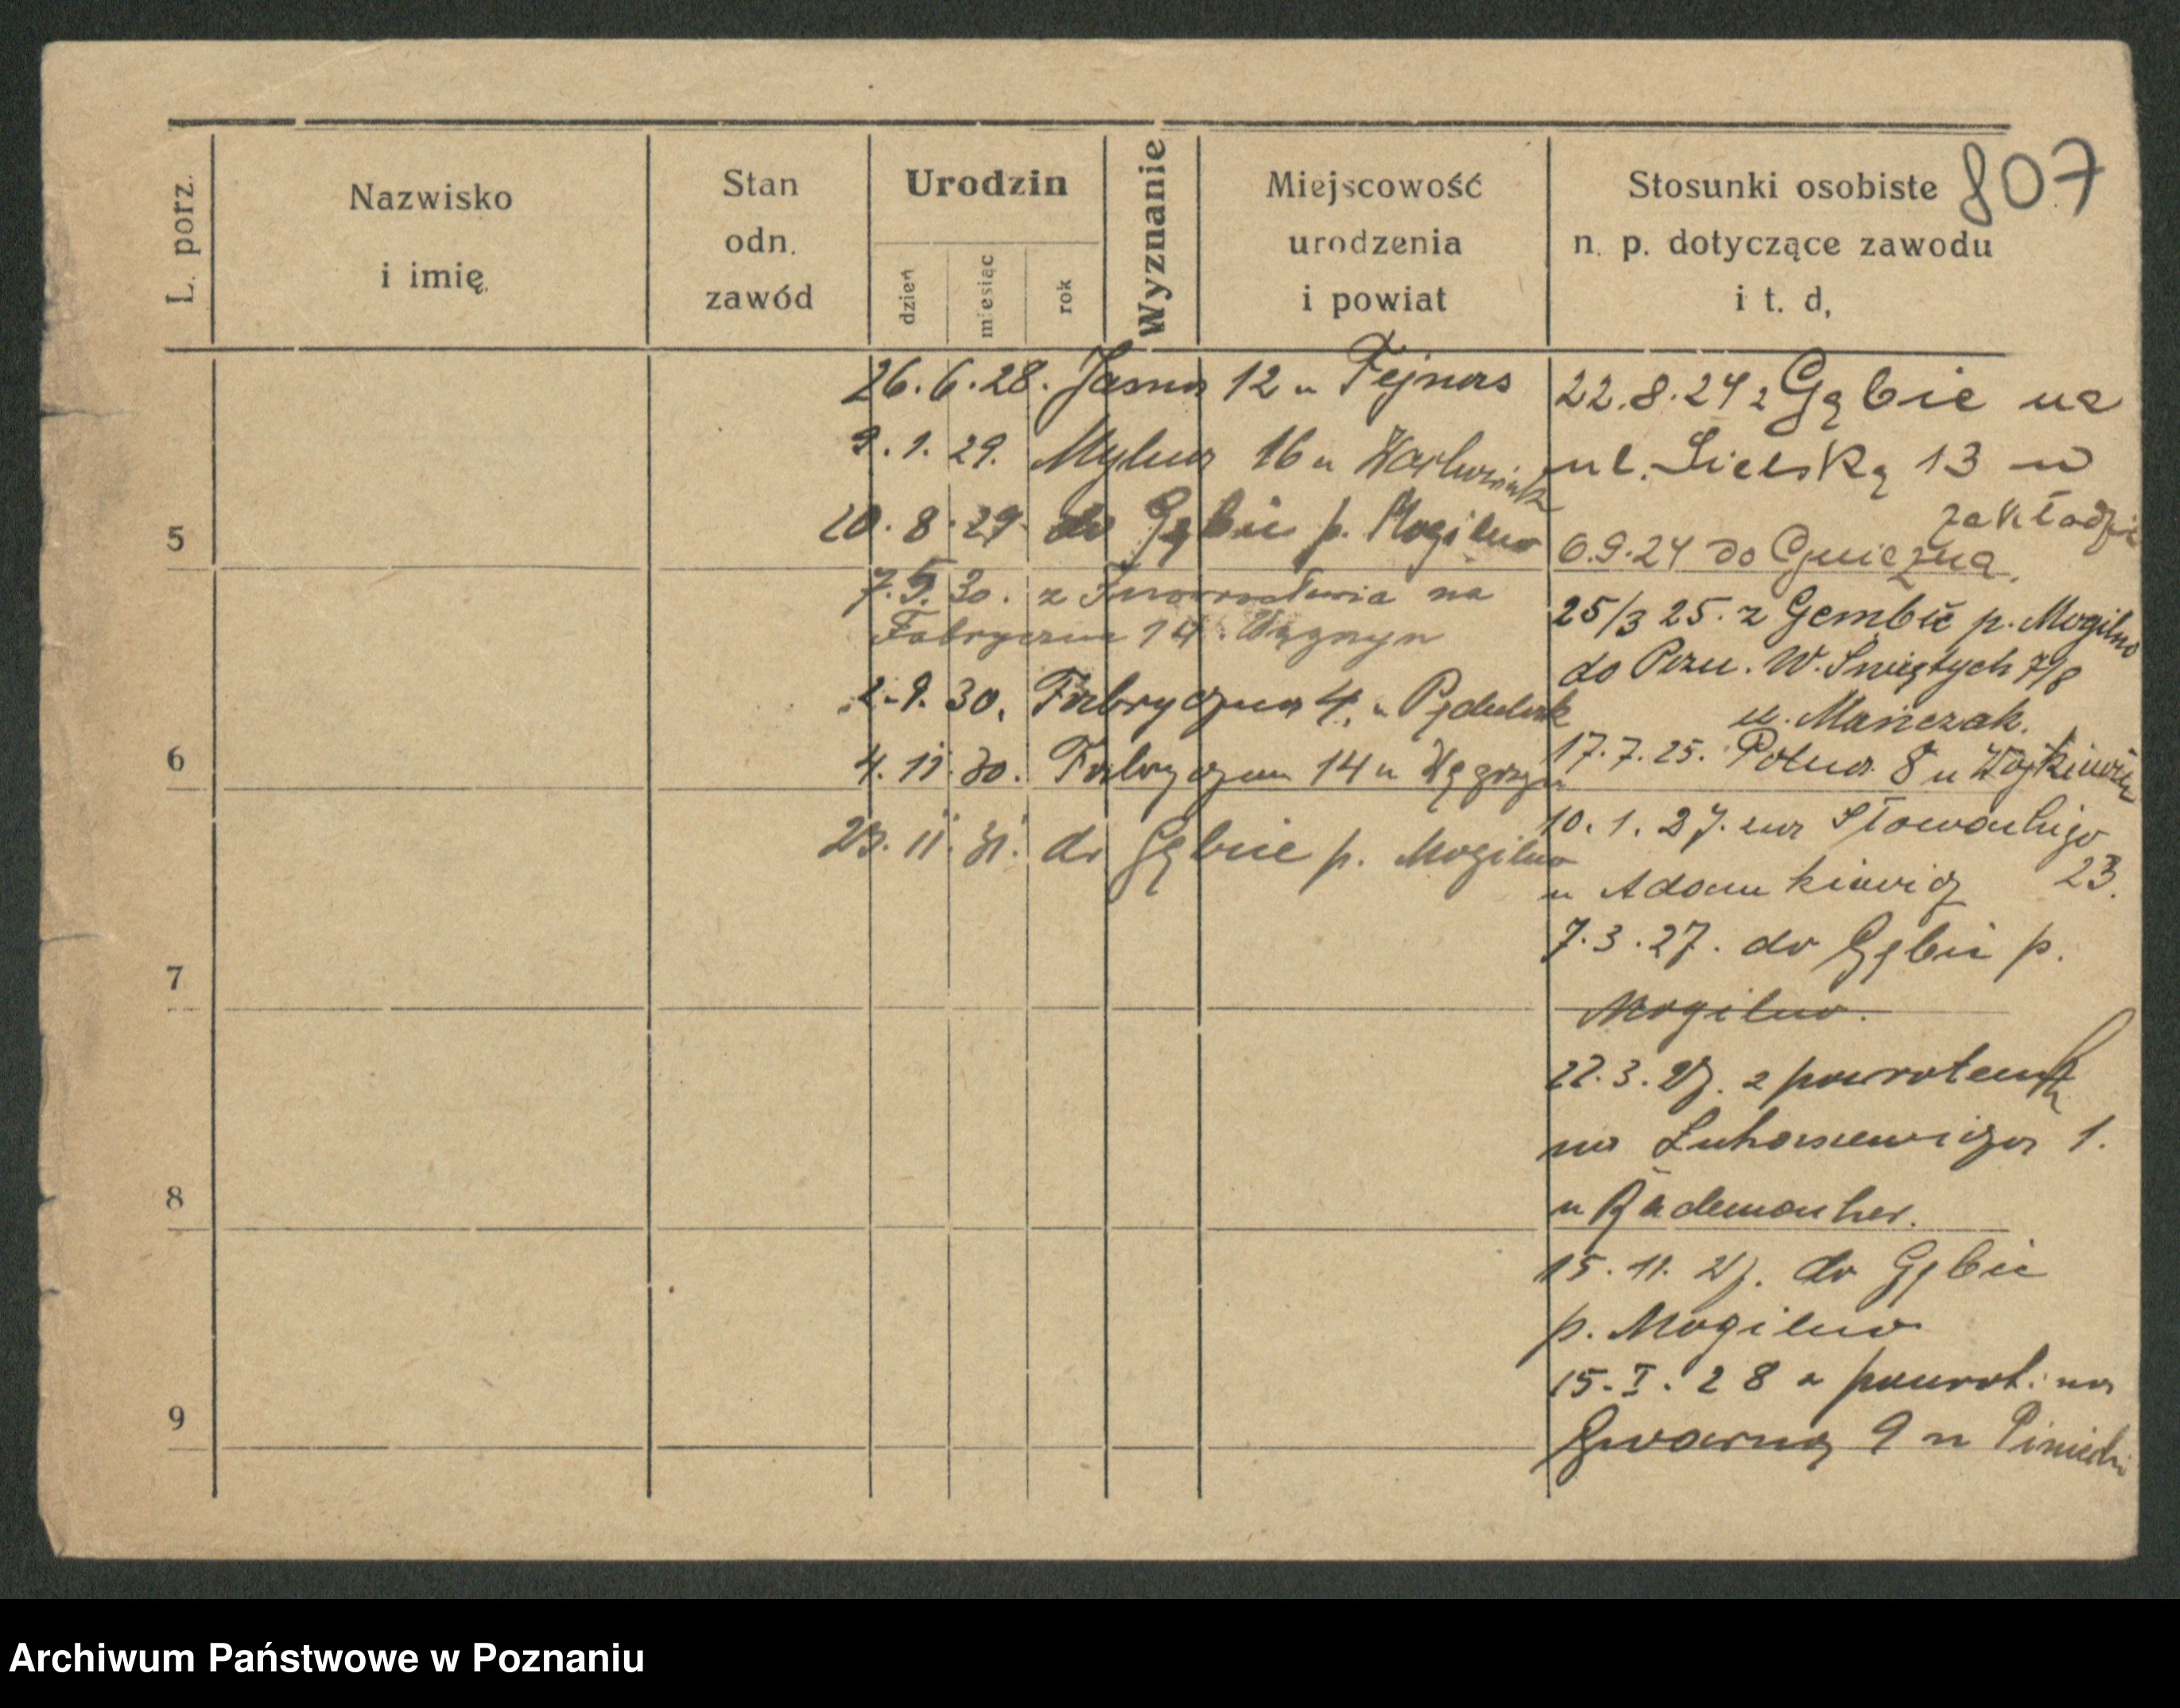 807
L. porz.
Nazwisko
i imię
Stan
odn.
zawód
Urodzin
dzień
miesiąc
rok
Wyznanie
Miejscowość
urodzenia
i powiat
Stosunki osobiste
n. p. dotyczące zawodu
i t. d,
5
6
7
8
9
26.6.28. Jasna 12 u Fejners
9.1.29. Mylna 16 u
20.8.29 do Gębic p. Mogilno
7.5.30. z Inowrocławia na
Fabryczna 14.
2.9.30. Fabryczna 4. u
4.11.30. Fabryczna 14 u Węgrzyn
23.11.31. do Gębic p. Mogilno
22.8.24 z Gębic na
ul. Sielską 13 w
zakładzie
6.9.24 do Gniezna.
25/3 25. z Gembic p. Mogilno
do Pozn. W. Świętych 7/8
u. Mańczak.
17.7.25. Polna 8 u
10.1.27. na Słowackiego
23.
u Adamkiewicz
7.3.27. do Gębic p.
Mogilno.
22.3.27. z powrotem
na Łukaszewicza 1.
u Rademacher.
15.11.27. do Gębic
p. Mogilno
15.I.28 z powrot. na
Gwarną 9 u
Archiwum Państwowe w Poznaniu